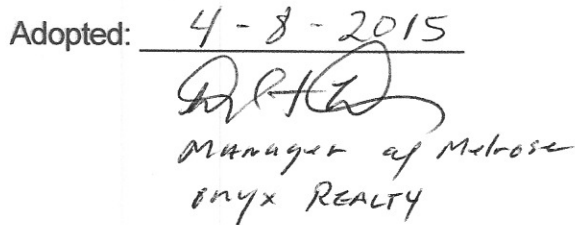 Adopted: 4-8-2015
Manager of Melrose
Onyx REALTY